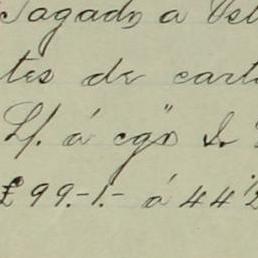 Pagado a Vel
tes de cart
L/. á cgo
£99.-1.- á 44 1/2